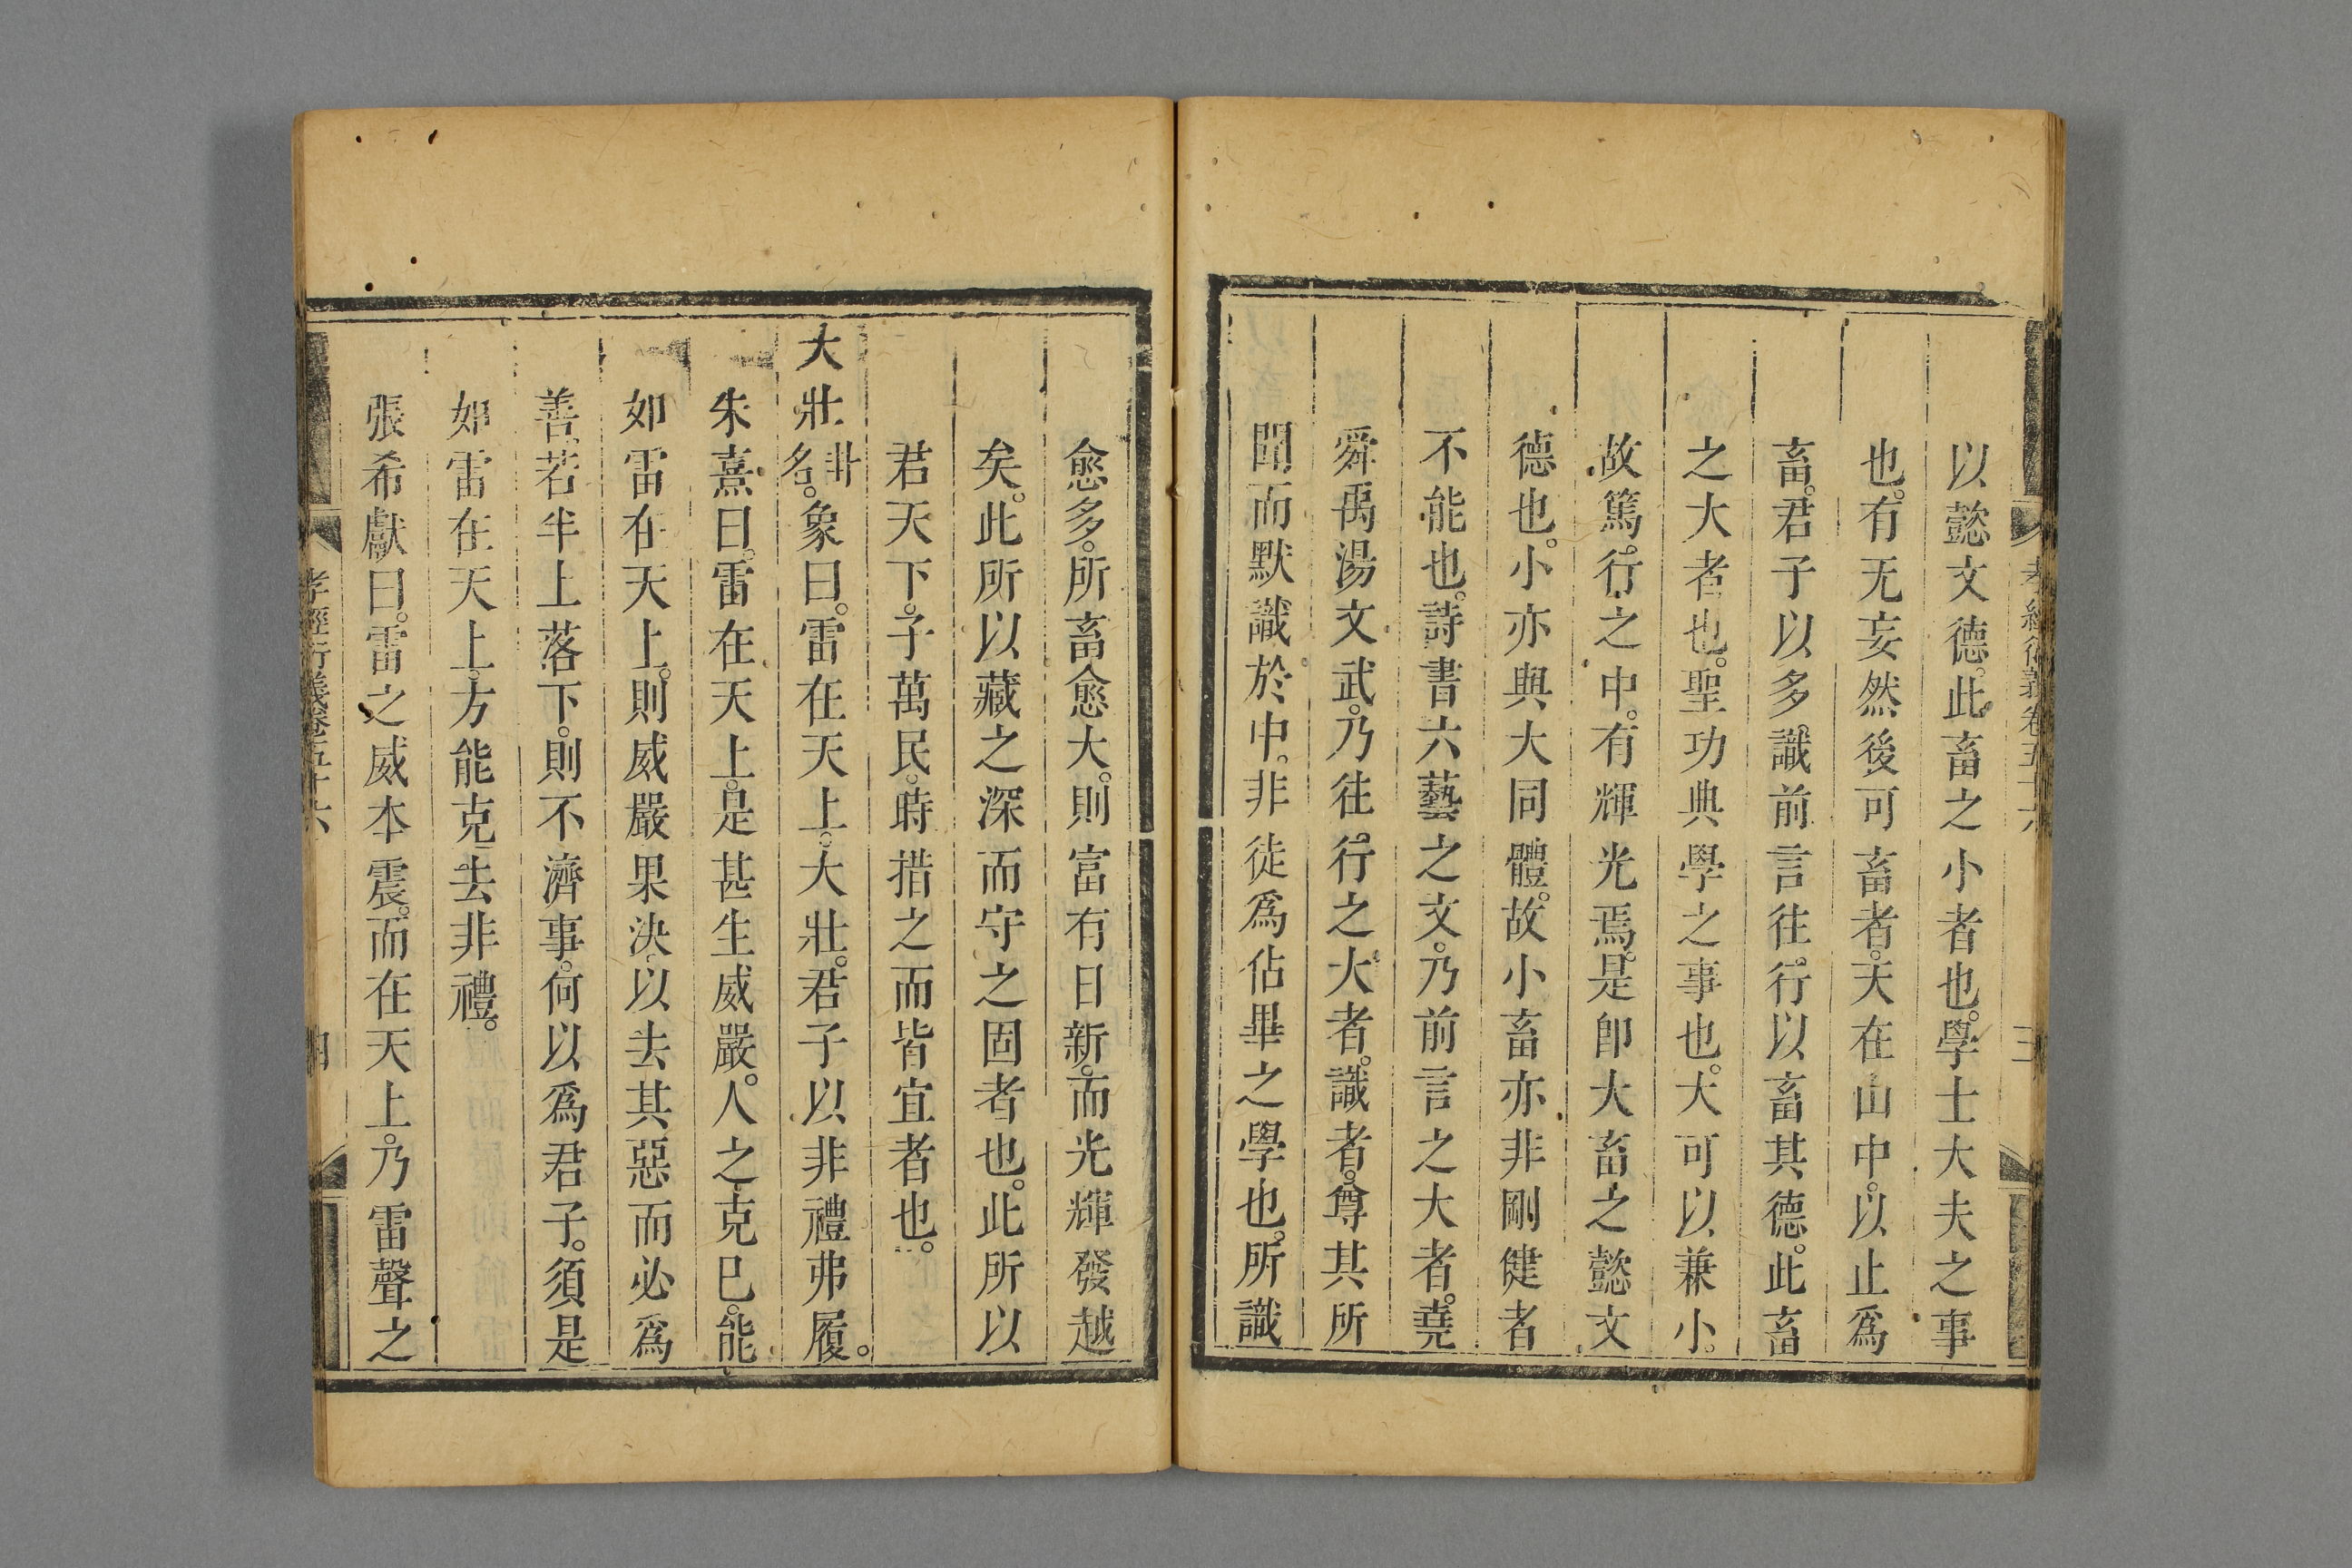 孝經衍義卷五十六
三
以懿文德。此畜之小者也。學士大夫之事
也。有无妄然後可畜者。天在山中。以止爲
畜。君子以多識前言往行以畜其德。此畜
之大者也。聖功典學之事也。大可以兼小。
故篤行之中。有輝光焉。是卽大畜之懿文
德也。小亦與大同體。故小畜亦非剛健者
不能也。詩書六藝之文。乃前言之大者。堯
舜禹湯文武。乃往行之大者。識者。尊其所
聞而默識於中。非徒爲佔畢之學也。所識
愈多。所畜愈大。則富有日新。而光輝發越
矣。此所以藏之深而守之固者也。此所以
君天下。子萬民。時措之而皆宜者也。
大壯卦名。象曰。雷在天上。大壯。君子以非禮弗履。
朱熹曰。雷在天上。是甚生威嚴。人之克已。能
如雷在天上。則威嚴果決。以去其惡而必爲
善。若半上落下。則不濟事。何以爲君子。須是
如雷在天上。方能克去非禮。
張希獻曰。雷之威本震。而在天上。乃雷聲之
孝經衍義卷五十六
四